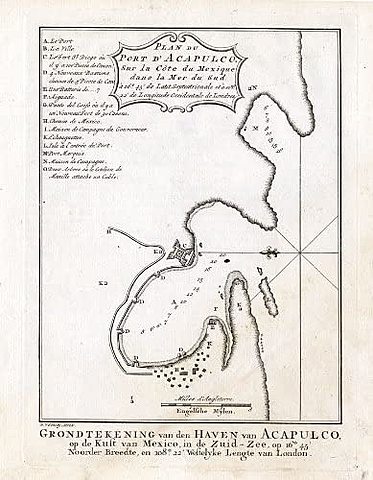 PLAN DU
PORT D'ACAPULCO,
Sur la Côte du Mexique
dans la Mer du Sud
a 16° 45' de Latit. Septentrionale et a 108°
22' de Longitude Occidentale de Londres.
A. Le Port
B. La Ville
C. Le Fort St. Diego où
il y a
D. 4 Nouveaux Bastions
chacun de 9 Pieces de Can.
E. Une Batterie de
F.
G. Pointe del Grifo où il y a
un Nouveau Fort de 30 Canons.
H. Chemin de Mexico.
I. Maison de Campagne du Gouverneur.
K. Echauguettes.
L. Isle à l'entrée du Port.
M. Port Marquis
N. Maison de Campagne.
O. Deux Arbres où le Galion de
Manille attache un Cable.
N
M
H
K
C
B
D
A
D
D
D
O
E
F
K
L
I
Milles d'Angleterre.
Engelsche Mylen.
GRONDTEKENING van den HAVEN van ACAPULCO,
op de Kust van Mexico, in de Zuid-Zee, op 16 gr. 45'
Noorder Breedte, en 108 gr. 22' Westelyke Lengte van London.